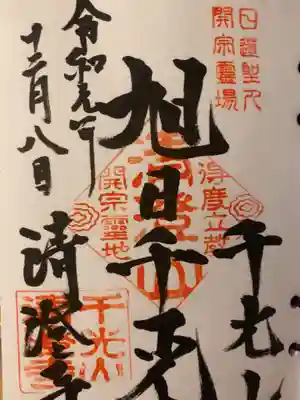 日蓮聖人
開宗霊場
千光山
旭日千光
得度立教
開宗霊地
清澄寺
令和元年
十二月八日
千光山
清澄寺